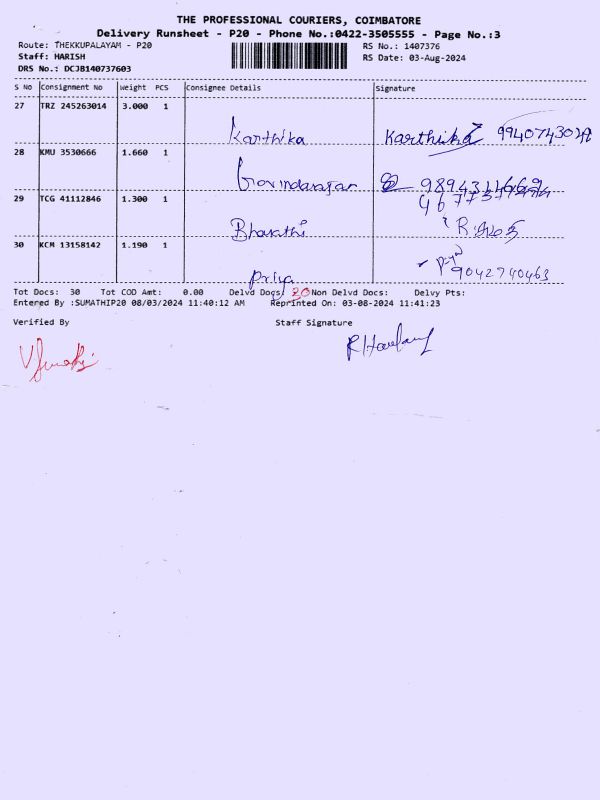 THE PROFESSIONAL COURIERS, COIMBATORE
Delivery Runsheet - P20 - Phone No.:0422-3505555 - Page No.:3
Route: THEKKUPALAYAM - P20 RS No.: 1407376
Staff: HARISH RS Date: 03-Aug-2024
DRS No.: DCJB140737603
S No Consignment No Weight PCS Consignee Details Signature
27 TRZ 245263014 3.000 1
Karthika Karthika
28 KMU 3530666 1.660 1
Govindarajan
29 TCG 41112846 1.300 1
Bharathi
30 KCM 13158142 1.190 1
Priya 9042740463
Tot Docs: 30 Tot COD Amt: 0.00 Delvd Docs: 30 Non Delvd Docs: Delvy Pts:
Entered By :SUMATHIP20 08/03/2024 11:40:12 AM Reprinted On: 03-08-2024 11:41:23
Verified By Staff Signature